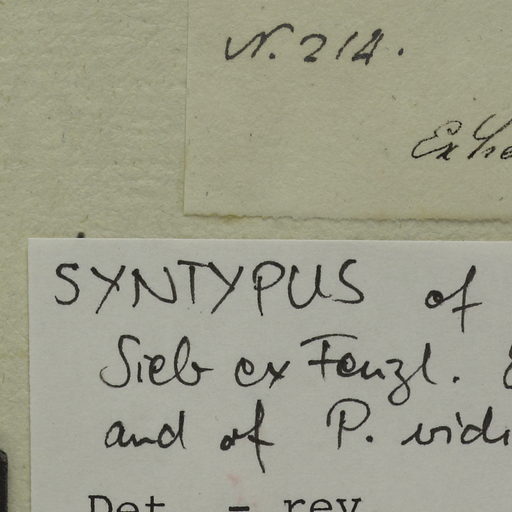 N. 214.
Ex
SYNTYPUS of
Sieb ex Fenzl.
and of P. vidi
Det. - rev.